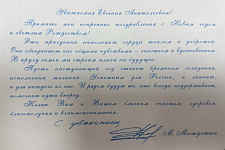 Уважаемая Евгения Анатольевна!
Примите мои искренние поздравления с Новым годом
и светлым Рождеством!
Эти праздники наполняют сердца теплом и добротой.
Они объединяют нас общими чувствами – счастья и вдохновения.
В кругу семьи мы строим планы на будущее.
Пусть наступающий год станет временем созидания,
исполнения желаний. Успешным для России, а значит,
и для каждого из нас. И рядом будут те, кто всегда поддерживает,
помогает идти вперёд.
Желаю Вам и Вашим близким счастья, здоровья,
благополучия и взаимопонимания.
С уважением,
М. Мишустин